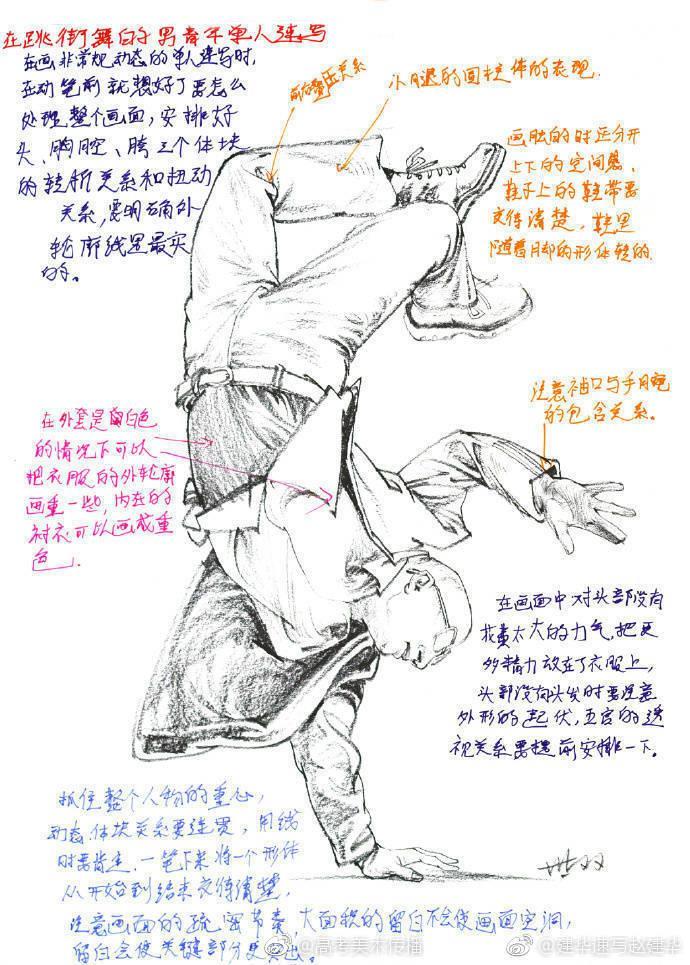 在跳街舞的男青年单人速写
在画非常规动态的单人速写时,
在动笔前就想好了要怎么
处理整个画面,安排好
头、胸腔、胯三个体块
的转折关系和扭动
关系,要明确外
轮廓线是最实
的。
前后叠压关系
小腿的圆柱体的表现.
画腿的时区分开
上下的空间感、
鞋子上的鞋带要
交待清楚,鞋是
随着脚的形体转的.
注意袖口与手腕
的包含关系.
在外套是留白色
的情况下可以
把衣服的外轮廓
画重一些,内在的
衬衣可以画成重
色.
在画面中对头部没有
花费太大的力气,把更
多精力放在了衣服上,
头部没有头发时要注意
外形的起伏,五官的透
视关系要提前安排一下.
抓住整个人物的重心,
动态.体块关系要连贯,用线
时要肯定.一笔下来将一个形体
从开始到结束交待清楚.
注意画面的疏密节奏,大面积的留白不会使画面空洞,
留白会使关键部分更突出。
@高考美术传播
@建华速写赵建华